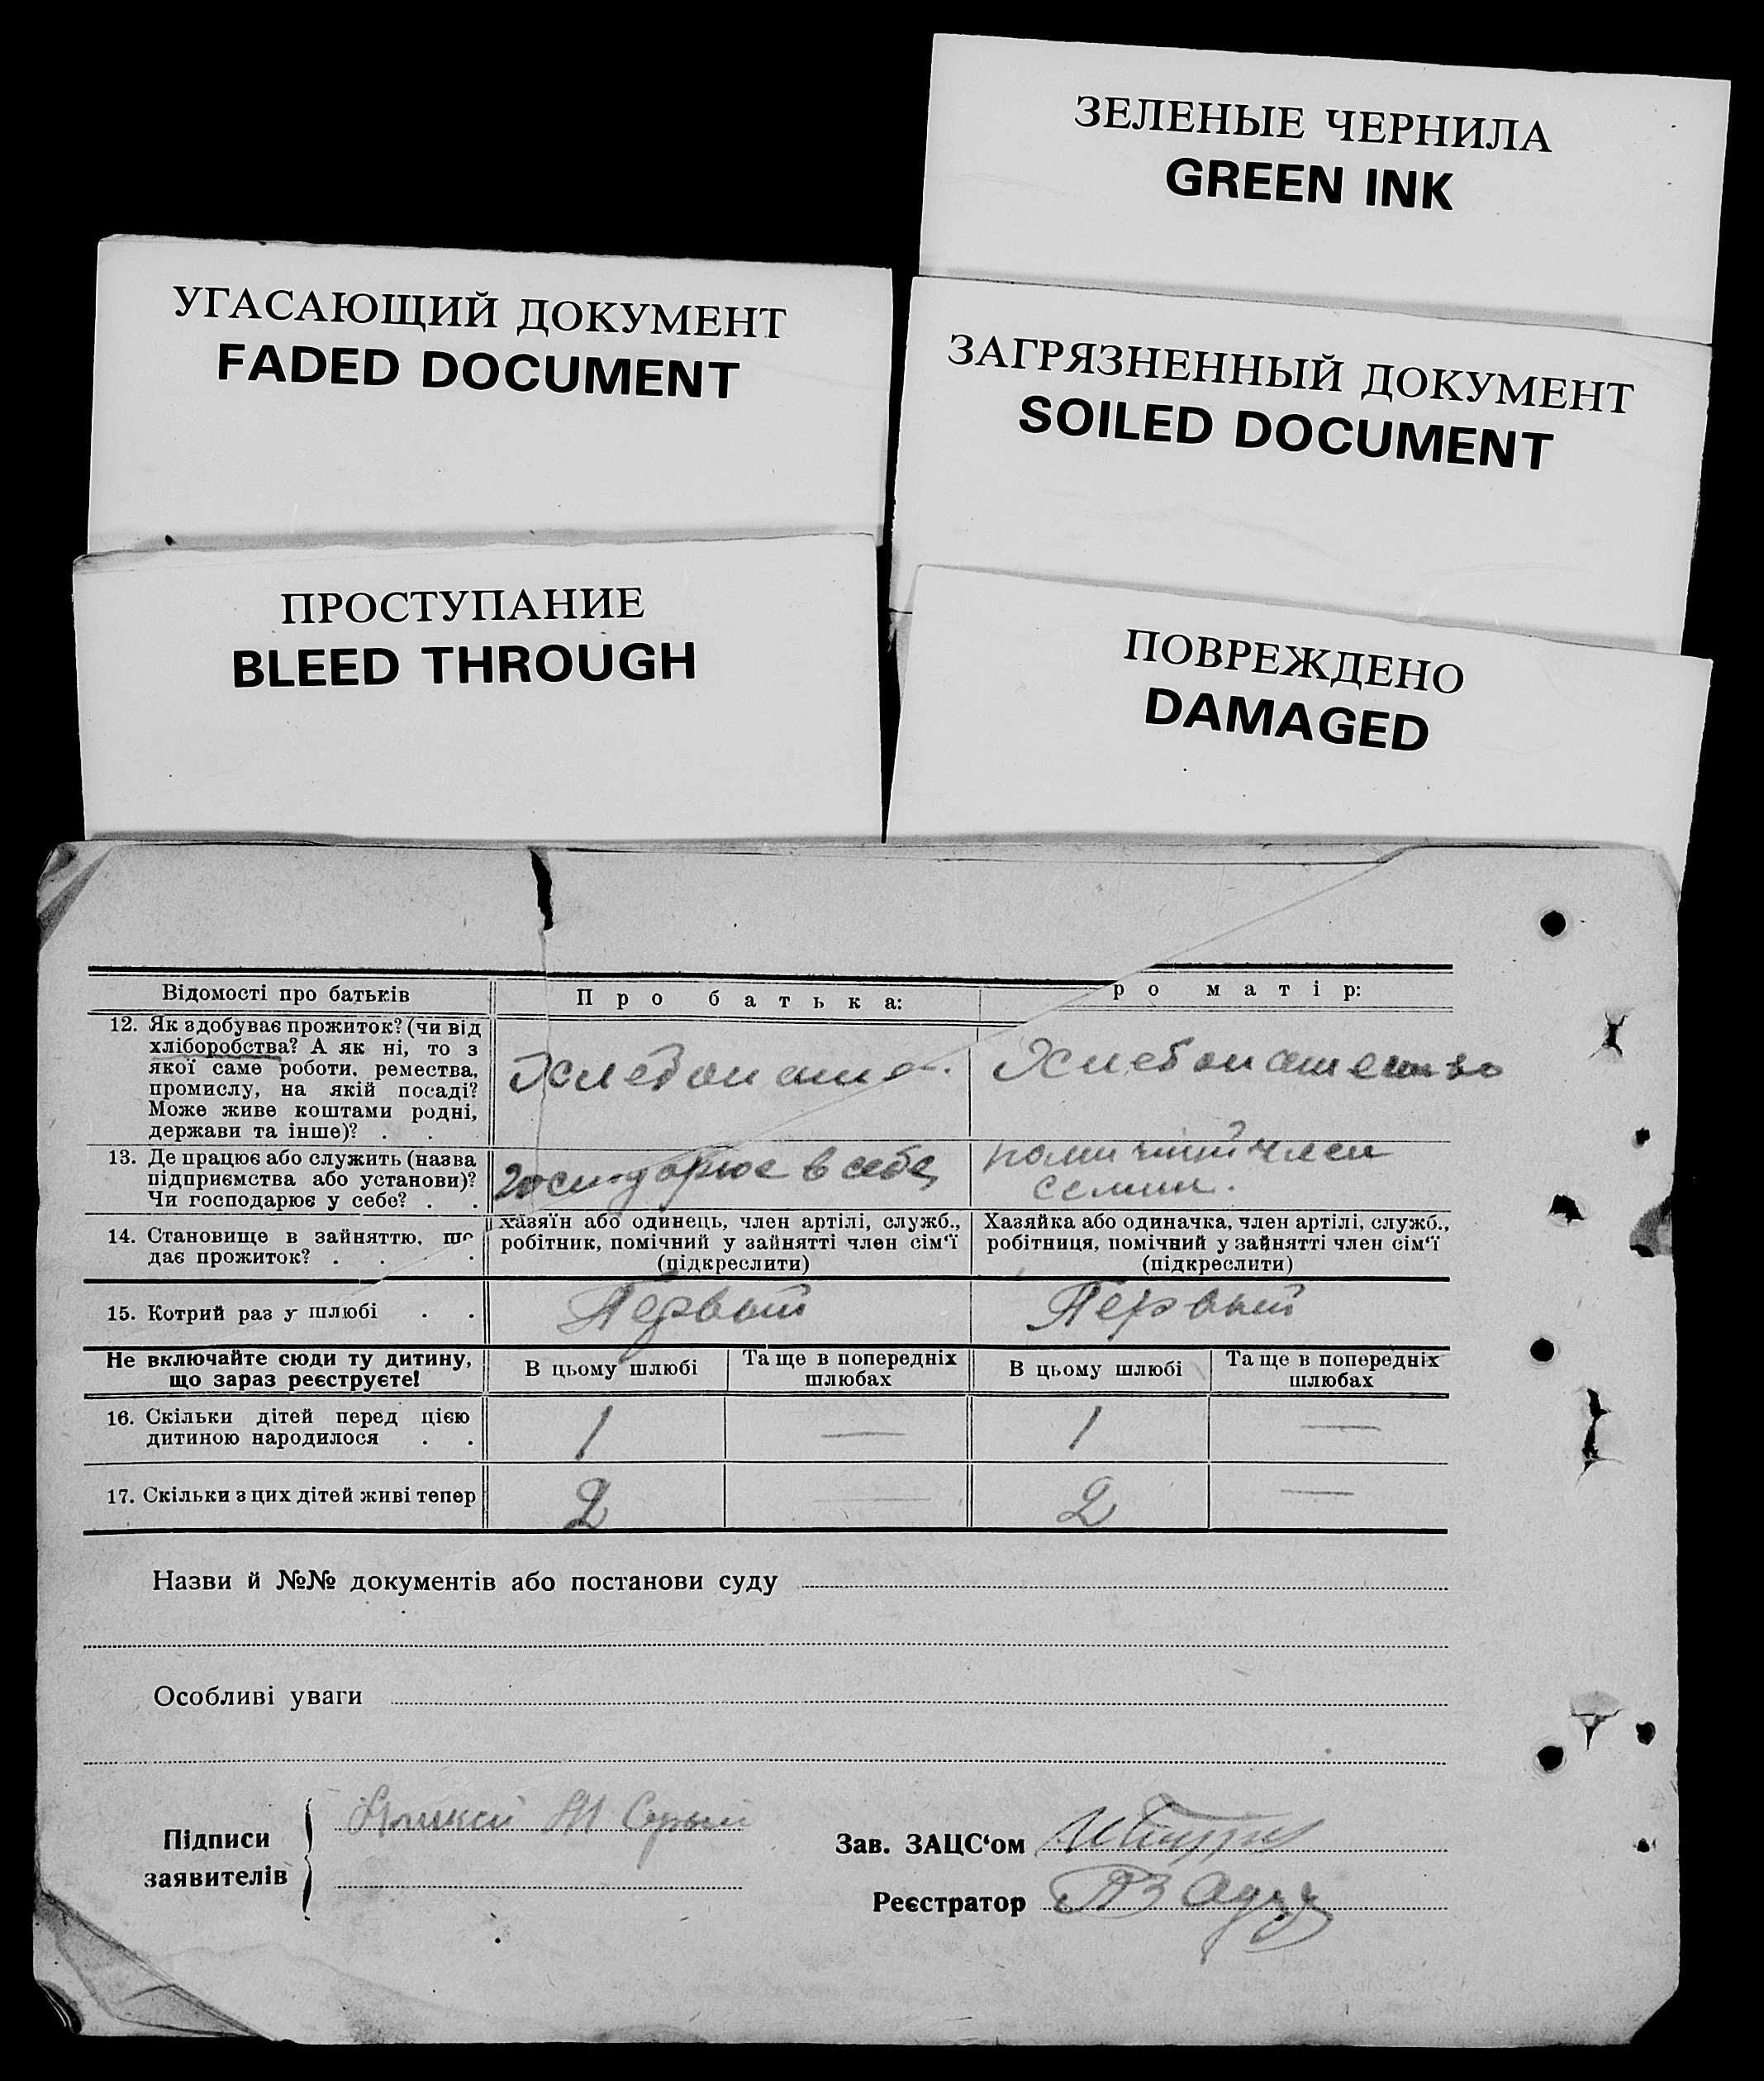 ЗЕЛЕНЫЕ ЧЕРНИЛА
GREEN INK
УГАСАЮЩИЙ ДОКУМЕНТ
FADED DOCUMENT
ЗАГРЯЗНЕННЫЙ ДОКУМЕНТ
SOILED DOCUMENT
ПРОСТУПАНИЕ
BLEED THROUGH
ПОВРЕЖДЕНО
DAMAGED
Відомості про батьків
Про батька:
ро матір:
12. Як здобуває прожиток? (чи від
хліборобства? А як ні, то з
якої саме роботи, ремества,
промислу, на якій посаді?
Може живе коштами родні,
держави та інше)? . .
Хлебопаш.
Хлебопашество
13. Де працює або служить (назва
підприємства або установи)?
Чи господарює у себе? . .
господарює в себе
помічний член
семии.
14. Становище в зайняттю, що
дає прожиток? . . . .
хазяїн або одинець, член артілі, служб.,
робітник, помічний у зайнятті член сім'ї
(підкреслити)
Хазяйка або одиначка, член артілі, служб.,
робітниця, помічний у зайнятті член сім'ї
(підкреслити)
15. Котрий раз у шлюбі . .
Первый
Первый
Не включайте сюди ту дитину,
що зараз реєструєте!
В цьому шлюбі
Та ще в попередніх
шлюбах
В цьому шлюбі
Та ще в попередніх
шлюбах
16. Скільки дітей перед цією
дитиною народилося . .
1 — 1 —
17. Скільки з цих дітей живі тепер
2 — 2 —
Назви й №№ документів або постанови суду
Особливі уваги
Підписи
заявителів
Серый
Зав. ЗАЦС'ом
Реєстратор